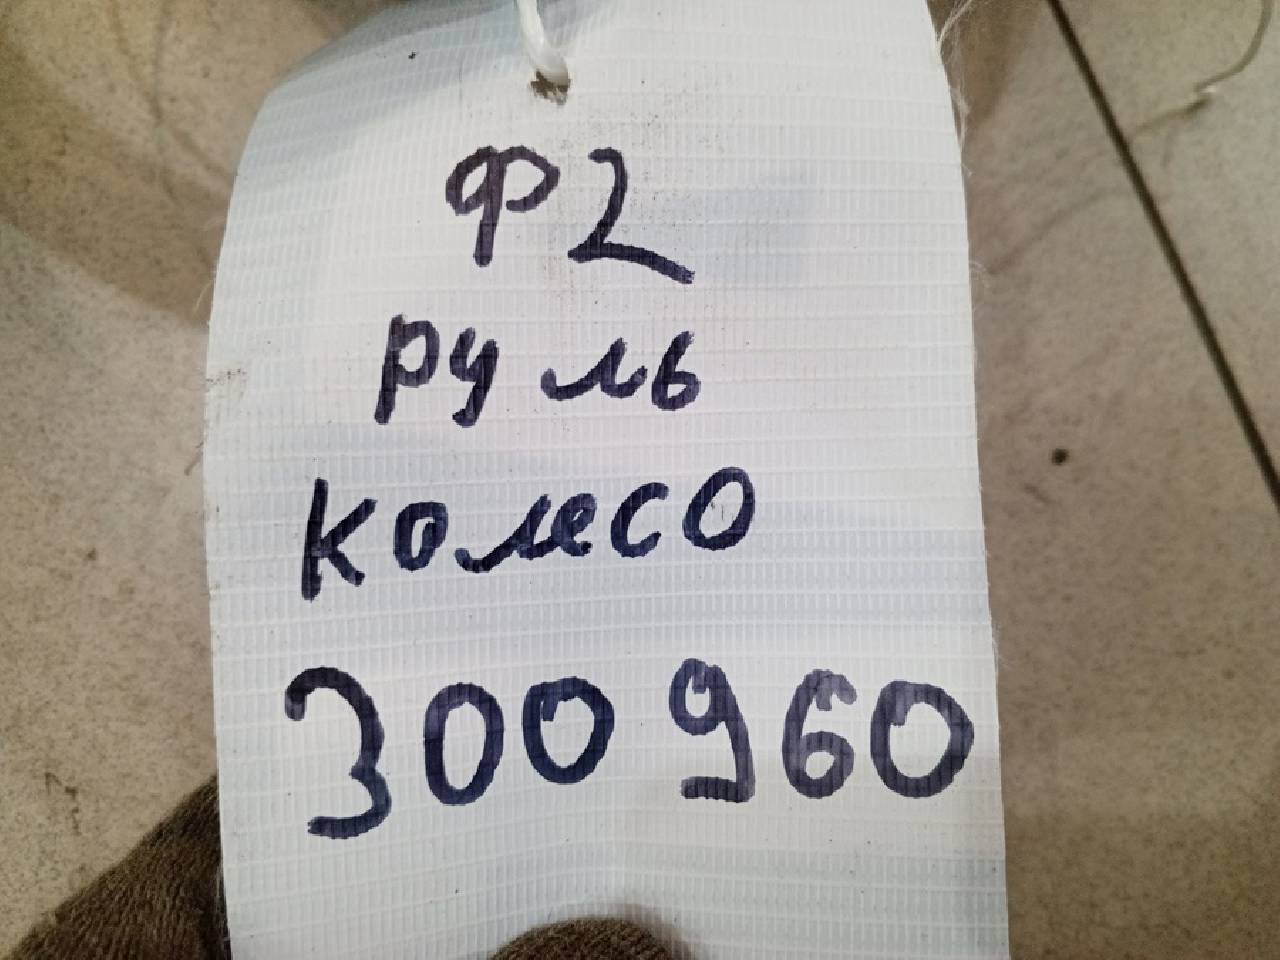 Ф2
руль
колесо
300960